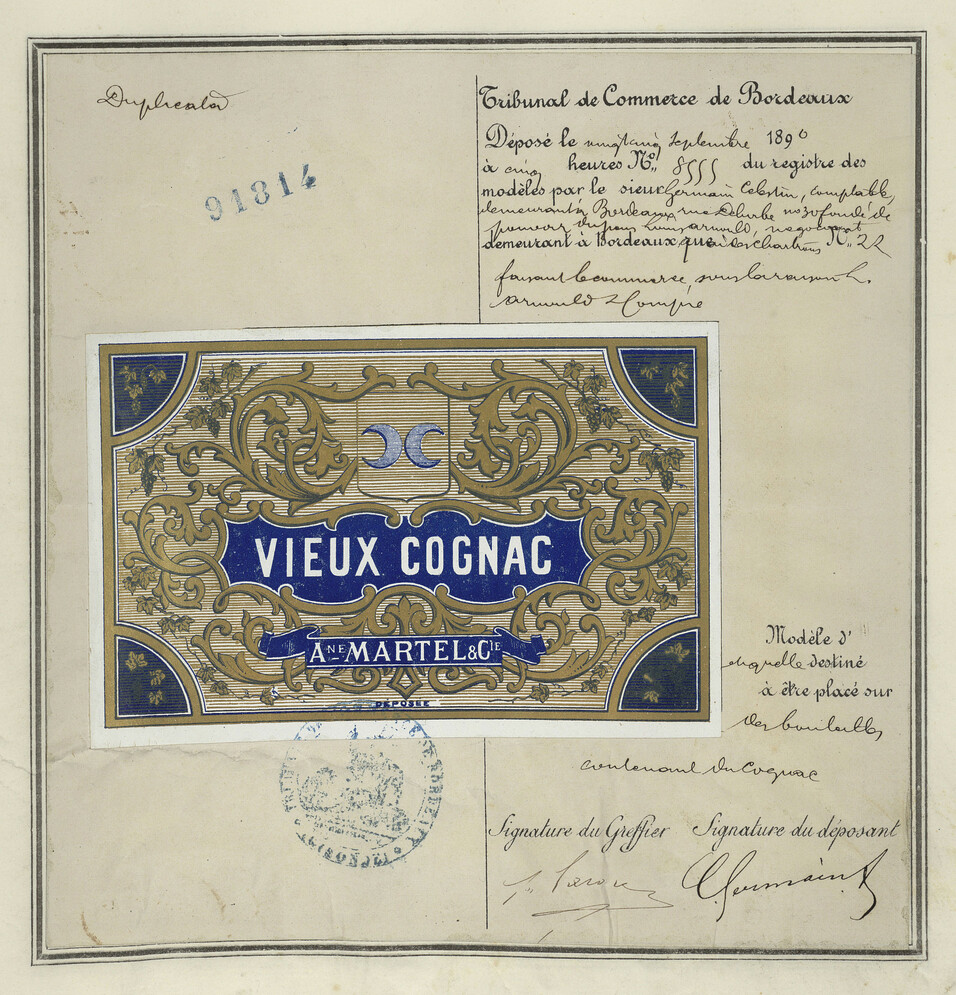 Duplicata
91814
Tribunal de Commerce de Bordeaux
Déposé le vingt cinq Septembre 1890
à cinq heures N° 8555 du registre des
modèles par le sieur Germain Celestin, comptable,
demeurant à Bordeaux rue fondé de
pouvoirs Louis Arnould, negociant
demeurant à Bordeaux quai des Chartrons N° 22
faisant le commerce sous la raison L.
Arnould & Compie
VIEUX COGNAC
ANE MARTEL & CIE
DÉPOSÉE
Modèle d'
etiquette destiné
à être placé sur
des bouteilles
contenant du Cognac
Signature du Greffier Signature du déposant
C. Germain